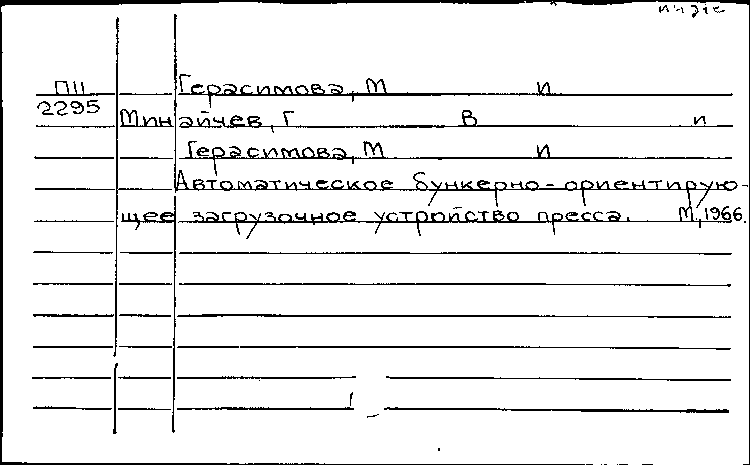 П11 Герасимова, М и
2295 Минайчев, Г В и
Герасимова, М и
Автоматическое бункерно-ориентирую-
щее загрузочное устройство пресса. М., 1966.